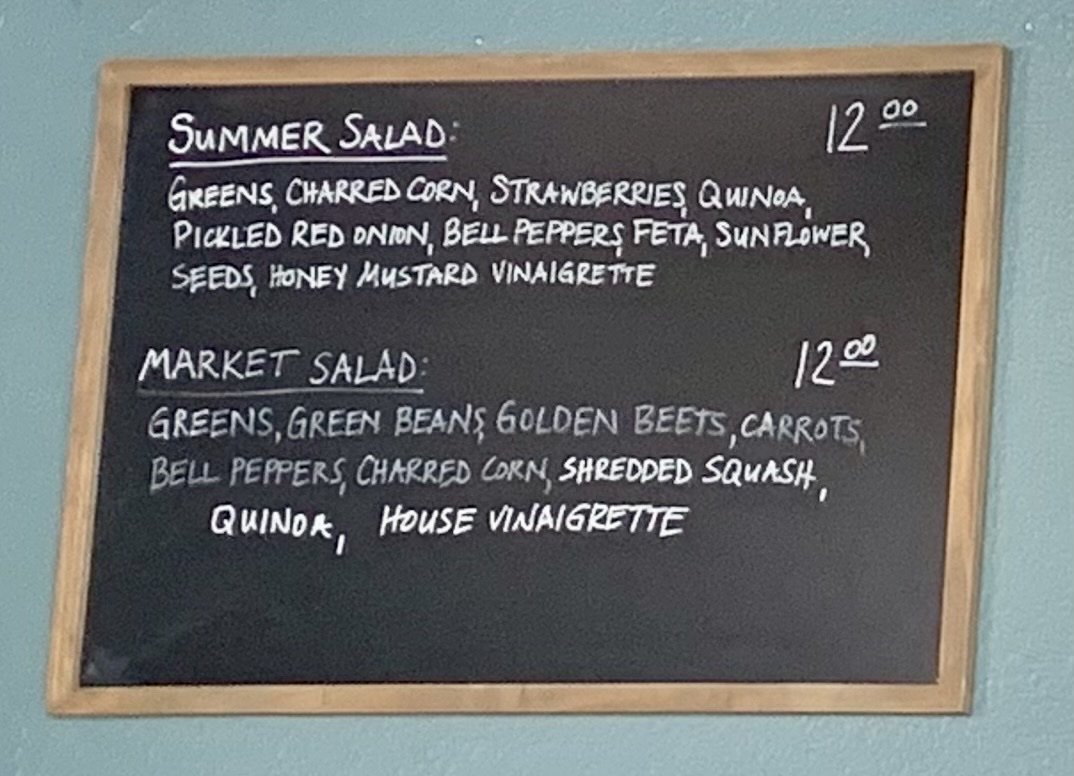 SUMMER SALAD: 12 00
GREENS, CHARRED CORN, STRAWBERRIES, QUINOA,
PICKLED RED ONION, BELL PEPPERS, FETA, SUNFLOWER,
SEEDS, HONEY MUSTARD VINAIGRETTE
MARKET SALAD: 12 00
GREENS, GREEN BEANS, GOLDEN BEETS, CARROTS,
BELL PEPPERS, CHARRED CORN, SHREDDED SQUASH,
QUINOA, HOUSE VINAIGRETTE